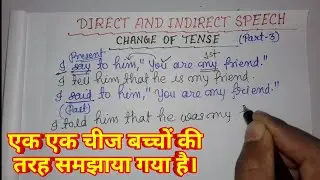 DIRECT AND INDIRECT SPEECH
CHANGE OF TENSE (Part-3)
Present 1st
I say to him, "You are my friend."
I tell him that he is my friend.
I said to him, "You are my friend."
(Past)
I told him that he was my
एक एक चीज बच्चों की
तरह समझाया गया है।